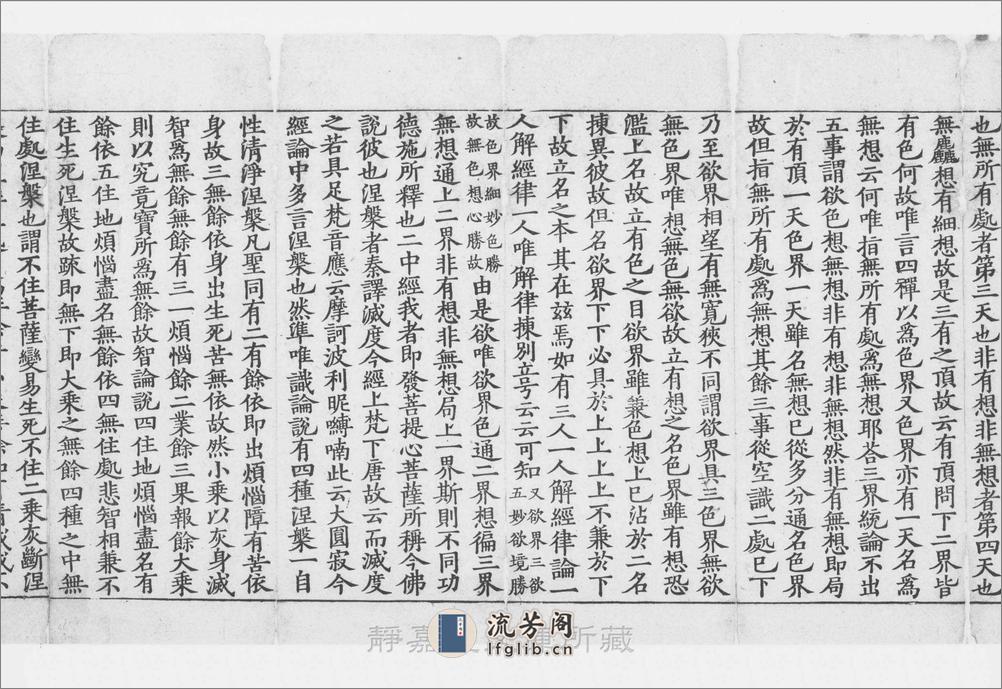 也無所有處者第三天也非有想非無想者第四天也
無麤想有細想故是三有之頂故云有頂問下二界皆
有色何故唯言四禪以爲色界又色界亦有一天名爲
無想云何唯指無所有處爲無想耶荅三界統論不出
五事謂欲色想無想非有想非無想然非有無想即局
於有頂一天色界一天雖名無想已從多分通名色界
故但指無所有處爲無想其餘三事從空識二處已下
乃至欲界相望有無寬狹不同謂欲界具三色界無欲
無色界唯想無色無欲故立有想之名色界雖有想恐
濫上名故立有色之目欲界雖兼色想上已沾於二名
揀異彼故但名欲界下下必具於上上上不兼於下
下故立名之本其在玆焉如有三人一人解經律論一
人解經律一人唯解律揀別立号云云可知又欲界三欲五妙欲境勝
故色界細妙色勝故無色想心勝故由是欲唯欲界色通二界想徧三界
無想通上二界非有想非無想局上一界斯則不同功
德施所釋也二中經我者即發菩提心菩薩所稱今佛
說彼也涅槃者秦譯滅度今經上梵下唐故云而滅度
之若具足梵音應云摩訶波利昵嚩喃此云大圓寂今
經論中多言涅槃也然準唯識論說有四種涅槃一自
性清淨涅槃凡聖同有二有餘依即出煩惱障有苦依
身故三無餘依身出生死苦無依故然小乘以灰身滅
智爲無餘無餘有三一煩惱餘二業餘三果報餘大乘
則以究竟寶所爲無餘故智論說四住地煩惱盡名有
餘依五住地煩惱盡名無餘依四無住處悲智相兼不
住生死涅槃故䟽即無下即大乘之無餘四種之中無
住處涅槃也謂不住菩薩變易生死不住二乘灰斷涅
靜嘉
所藏
流芳阁
lfglib.cn